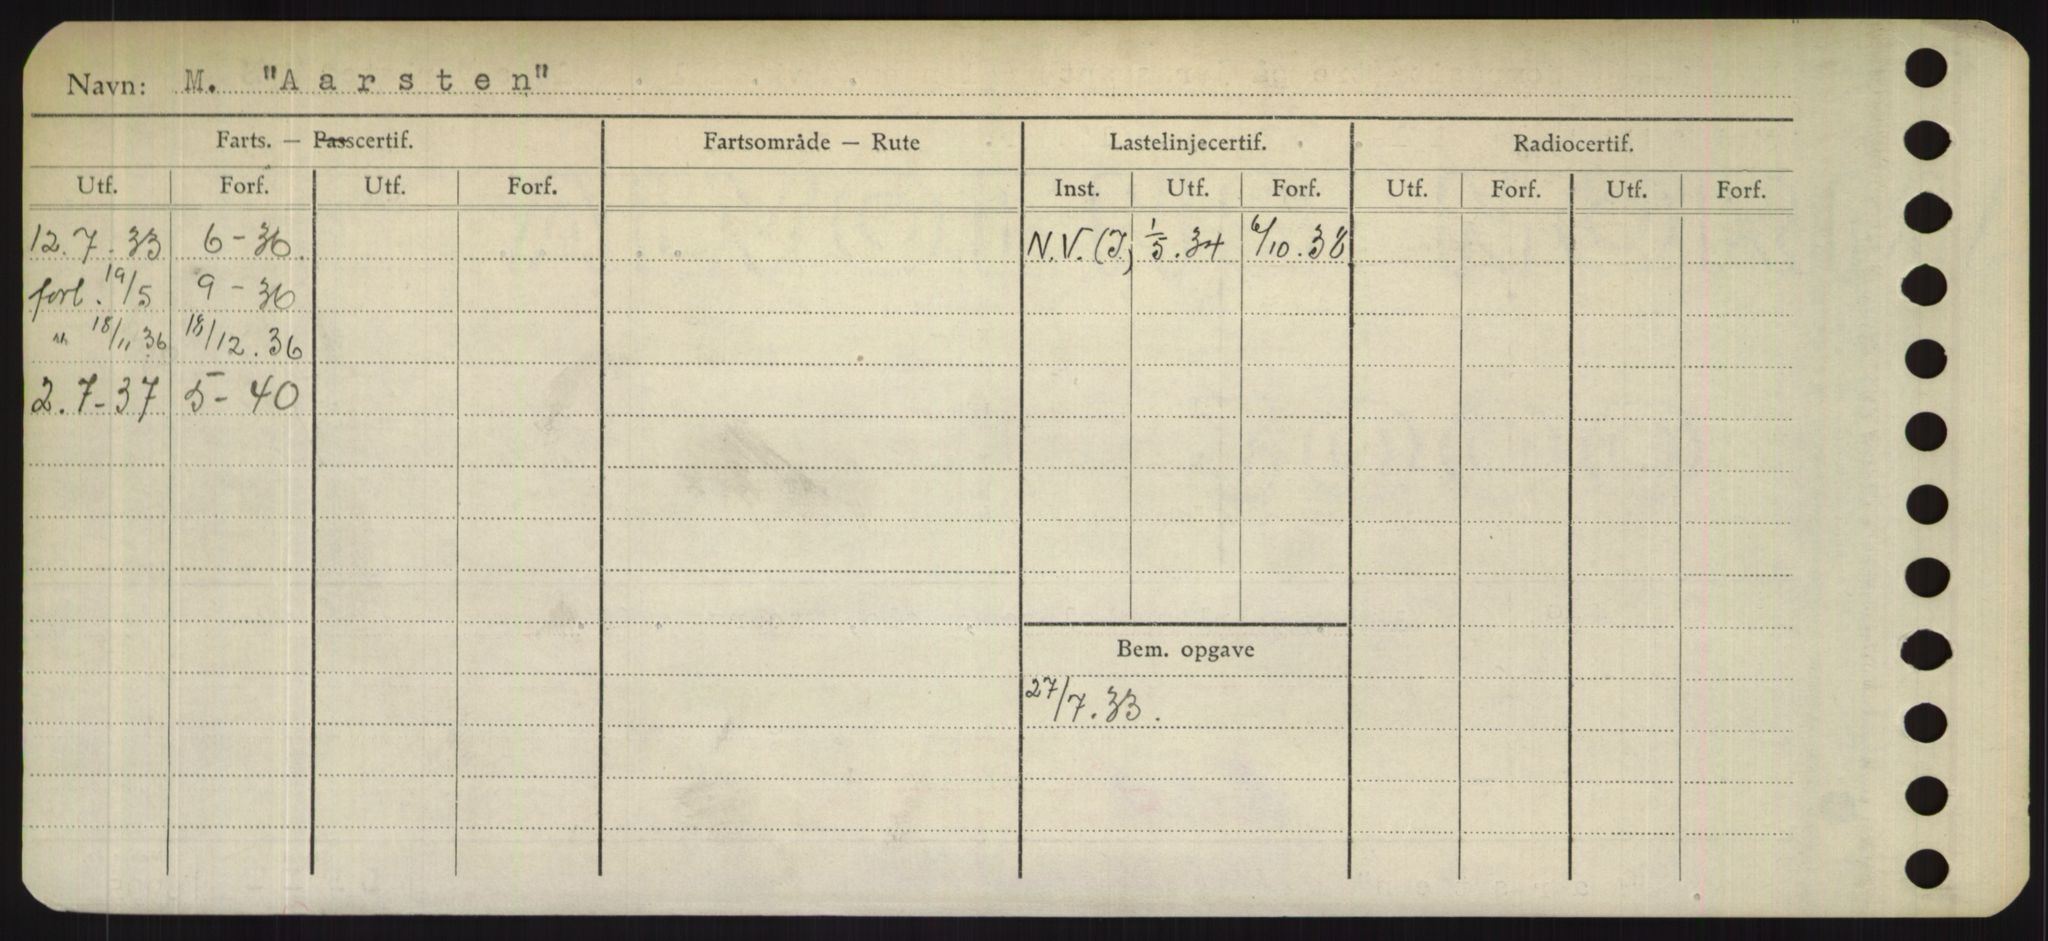 Navn: M. "Aarsten"
Farts. — Passcertif. Fartsområde — Rute Lastelinjecertif. Radiocertif.
Utf. Forf. Utf. Forf. Inst. Utf. Forf. Utf. Forf. Utf. Forf.
12.7.33 6-36. N.V. (I) 1/5.34 6/10.38
forl. 19/5 9-36
" 18/11 36 18/12.36
2.7-37 5-40
Bem. opgave
27/7.33.